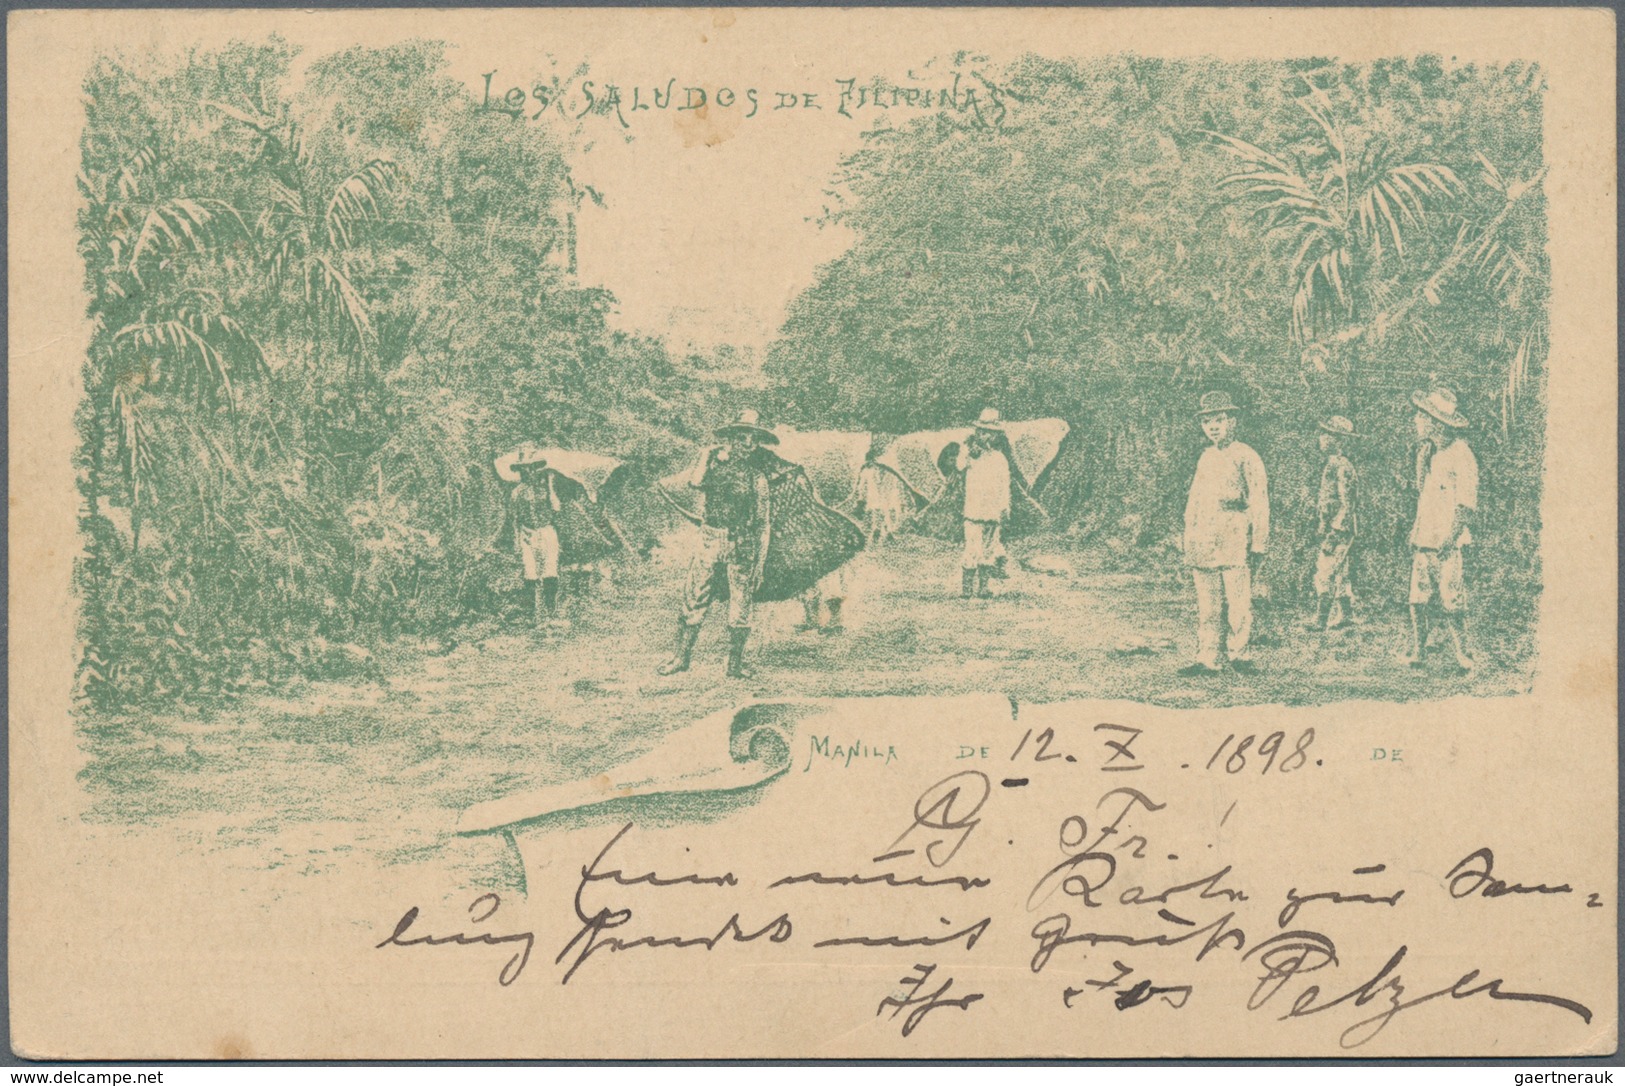 Los SALUDOS DE FILIPINAS
MANILA DE 12. X. 1898. DE
G. Fr.!
Eine neue Karte zur Sam-
lung sendet mit Gruß
Ihr Jos Pelzer
www.delcampe.net
gaertnerauk